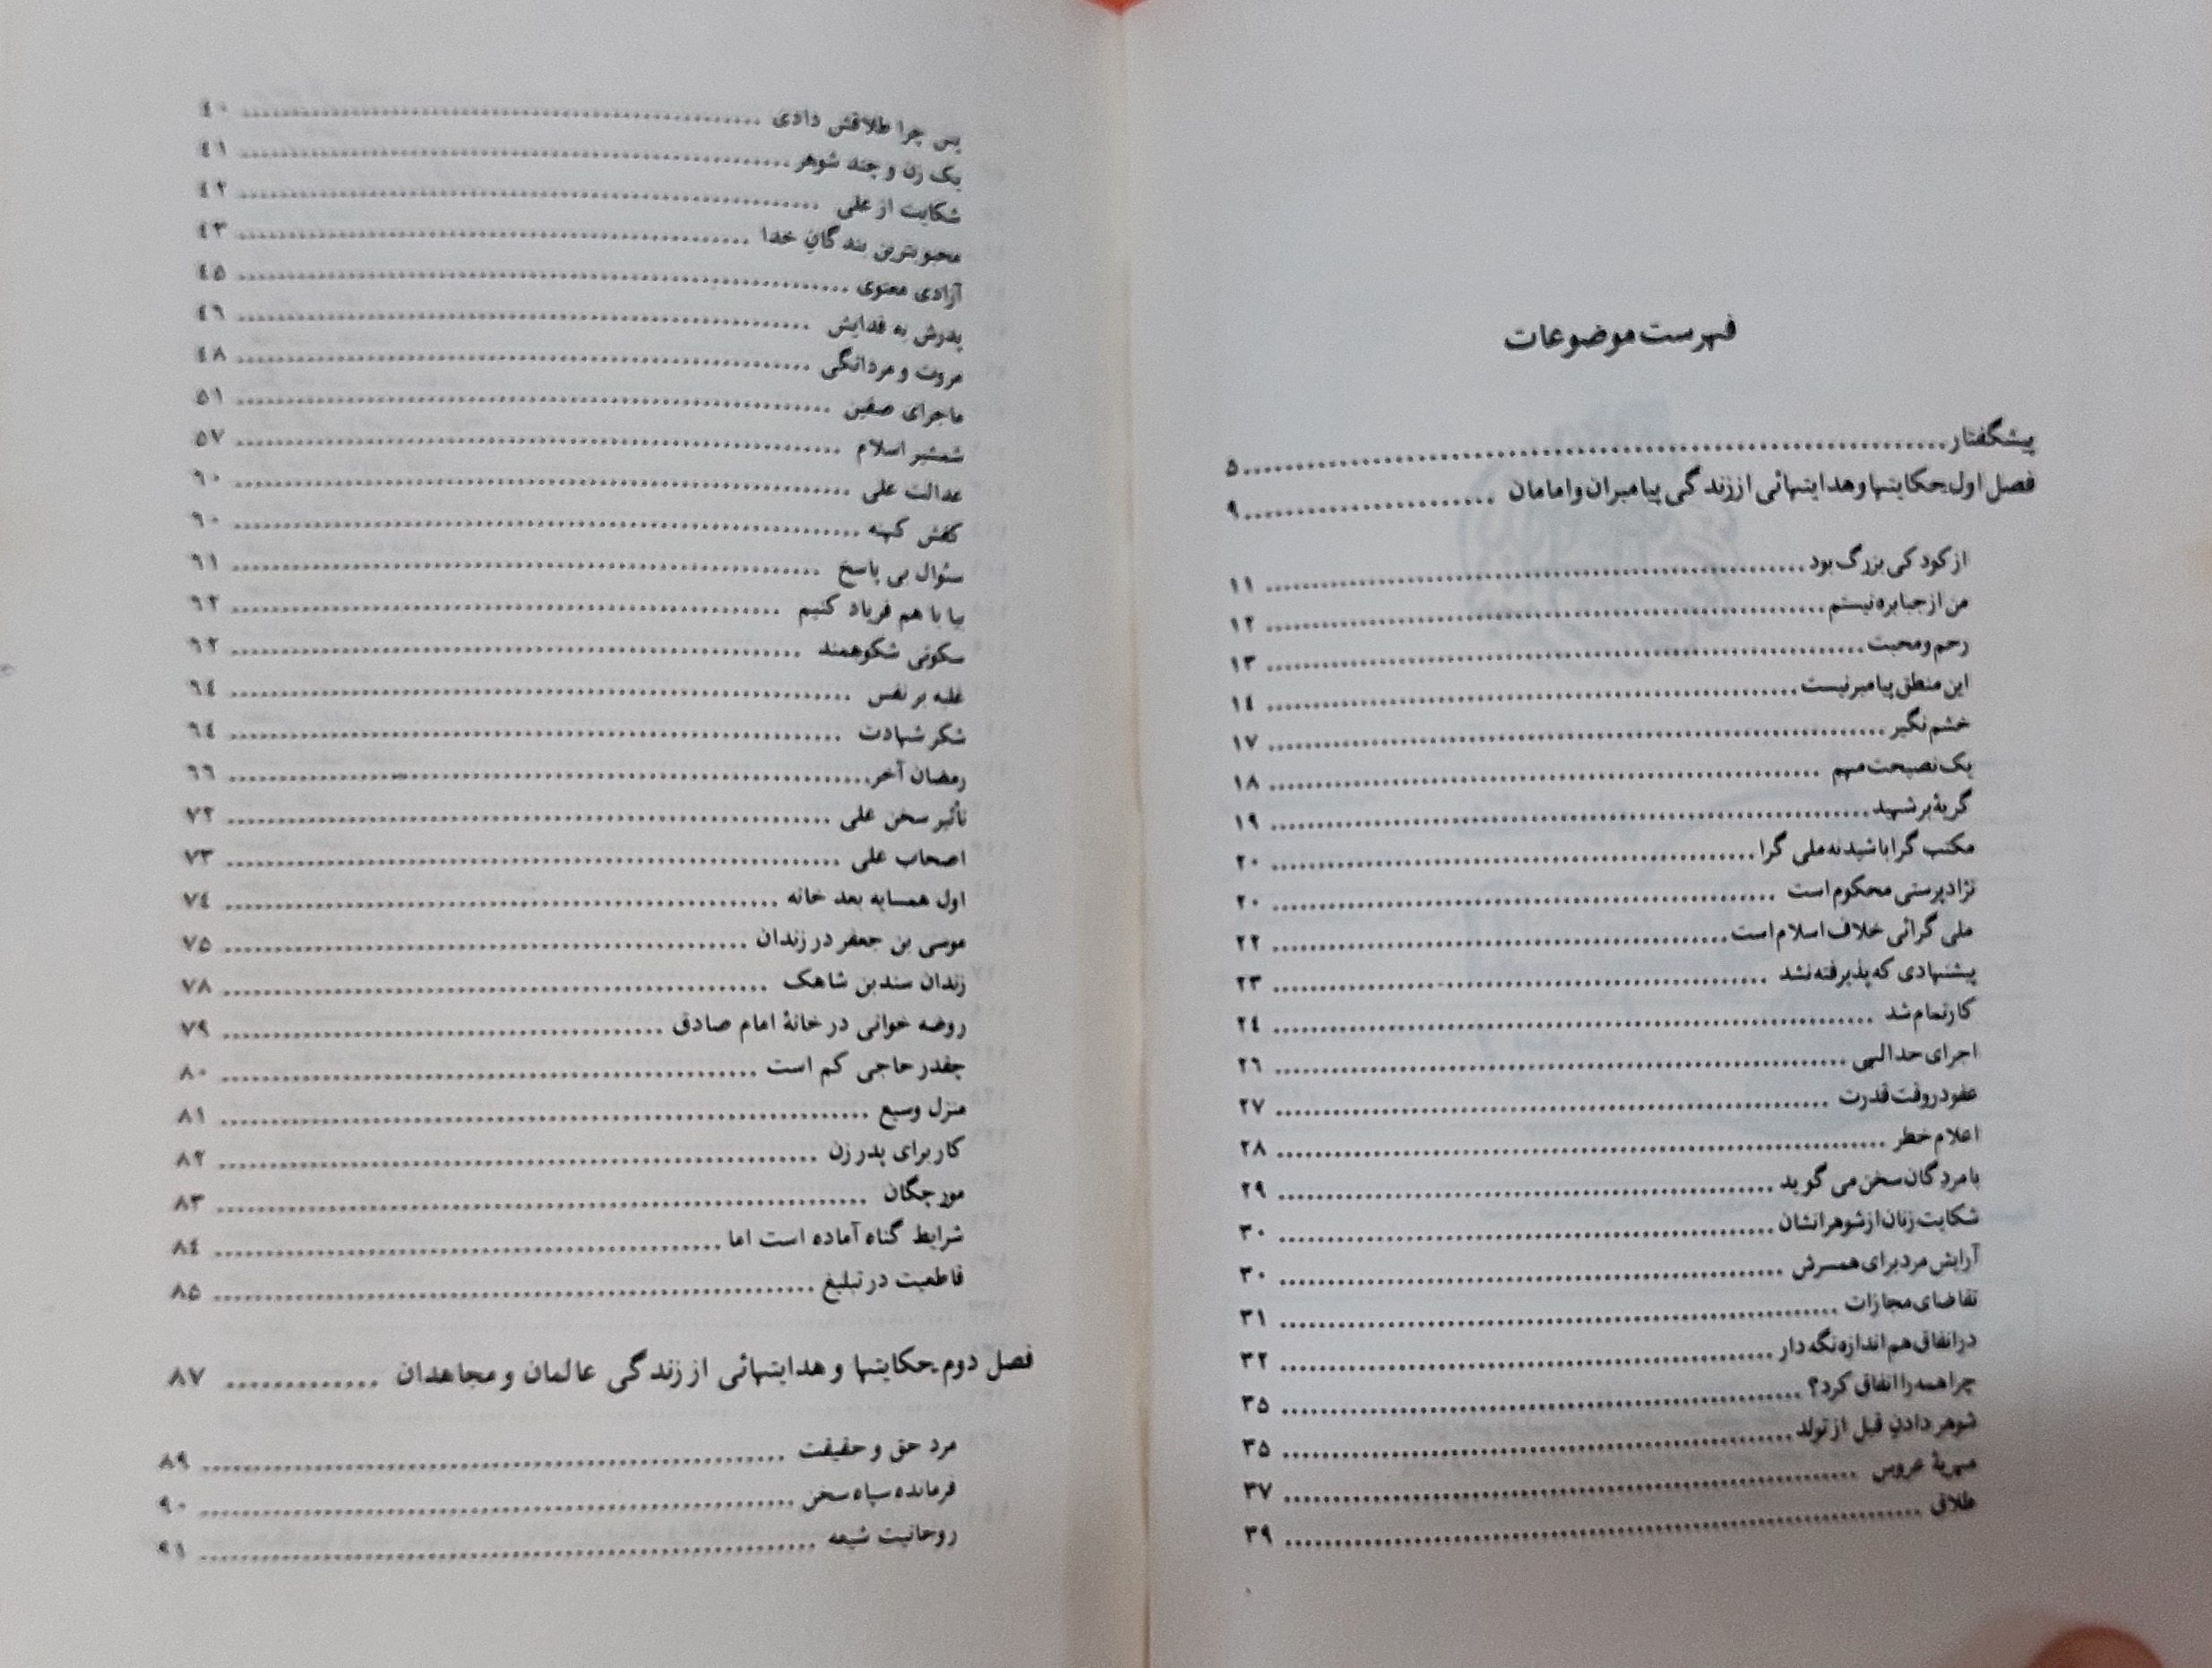 فهرست موضوعات
پیشگفتار ..... ۵
فصل اول حکایتها و هدایتهائی از زندگی پیامبران و امامان ..... ۹
از کودکی بزرگ بود ..... ۱۱
من از جبابره نیستم ..... ۱۲
رحم و محبت ..... ۱۳
این منطق پیامبر نیست ..... ۱٤
خشم نگیر ..... ۱۷
یک نصیحت مهم ..... ۱۸
گریهٔ بر شهید ..... ۱۹
مکتب گرا باشید نه ملی گرا ..... ۲۰
نژاد پرستی محکوم است ..... ۲۰
ملی گرائی خلاف اسلام است ..... ۲۲
پیشنهادی که پذیرفته نشد ..... ۲۳
کار تمام شد ..... ۲٤
اجرای حد الهی ..... ۲٦
عفو در وقت قدرت ..... ۲۷
اعلام خطر ..... ۲۸
با مردگان سخن می گوید ..... ۲۹
شکایت زنان از شوهرانشان ..... ۳۰
آرایش مرد برای همسرش ..... ۳۰
تقاضای مجازات ..... ۳۱
در انفاق هم اندازه نگه دار ..... ۳۲
چرا همه را انفاق کرد؟ ..... ۳۵
شوهر دادن قبل از تولد ..... ۳۵
مهریهٔ عروس ..... ۳۷
طلاق ..... ۳۹
پس چرا طلاقش دادی ..... ٤۰
یک زن و چند شوهر ..... ٤۱
شکایت از علی ..... ٤۲
محبوبترین بندگان خدا ..... ٤۳
آزادی معنوی ..... ٤۵
پدرش به فدایش ..... ٤٦
مروت و مردانگی ..... ٤۸
ماجرای صفین ..... ۵۱
شمشیر اسلام ..... ۵۷
عدالت علی ..... ٦۰
کفش کهنه ..... ٦۰
سئوال بی پاسخ ..... ٦۱
بیا با هم فریاد کنیم ..... ٦۲
سکوتی شکوهمند ..... ٦۲
غلبه بر نفس ..... ٦٤
شکر شهادت ..... ٦٤
رمضان آخر ..... ٦٦
تأثیر سخن علی ..... ۷۲
اصحاب علی ..... ۷۳
اول همسایه بعد خانه ..... ۷٤
موسی بن جعفر در زندان ..... ۷۵
زندان سندبن شاهک ..... ۷۸
روضه خوانی در خانهٔ امام صادق ..... ۷۹
چقدر حاجی کم است ..... ۸۰
منزل وسیع ..... ۸۱
کار برای پدر زن ..... ۸۲
مورچگان ..... ۸۳
شرایط گناه آماده است اما ..... ۸٤
قاطعیت در تبلیغ ..... ۸۵
فصل دوم حکایتها و هدایتهائی از زندگی عالمان و مجاهدان ..... ۸۷
مرد حق و حقیقت ..... ۸۹
فرمانده سپاه سخن ..... ۹۰
روحانیت شیعه ..... ۹۱